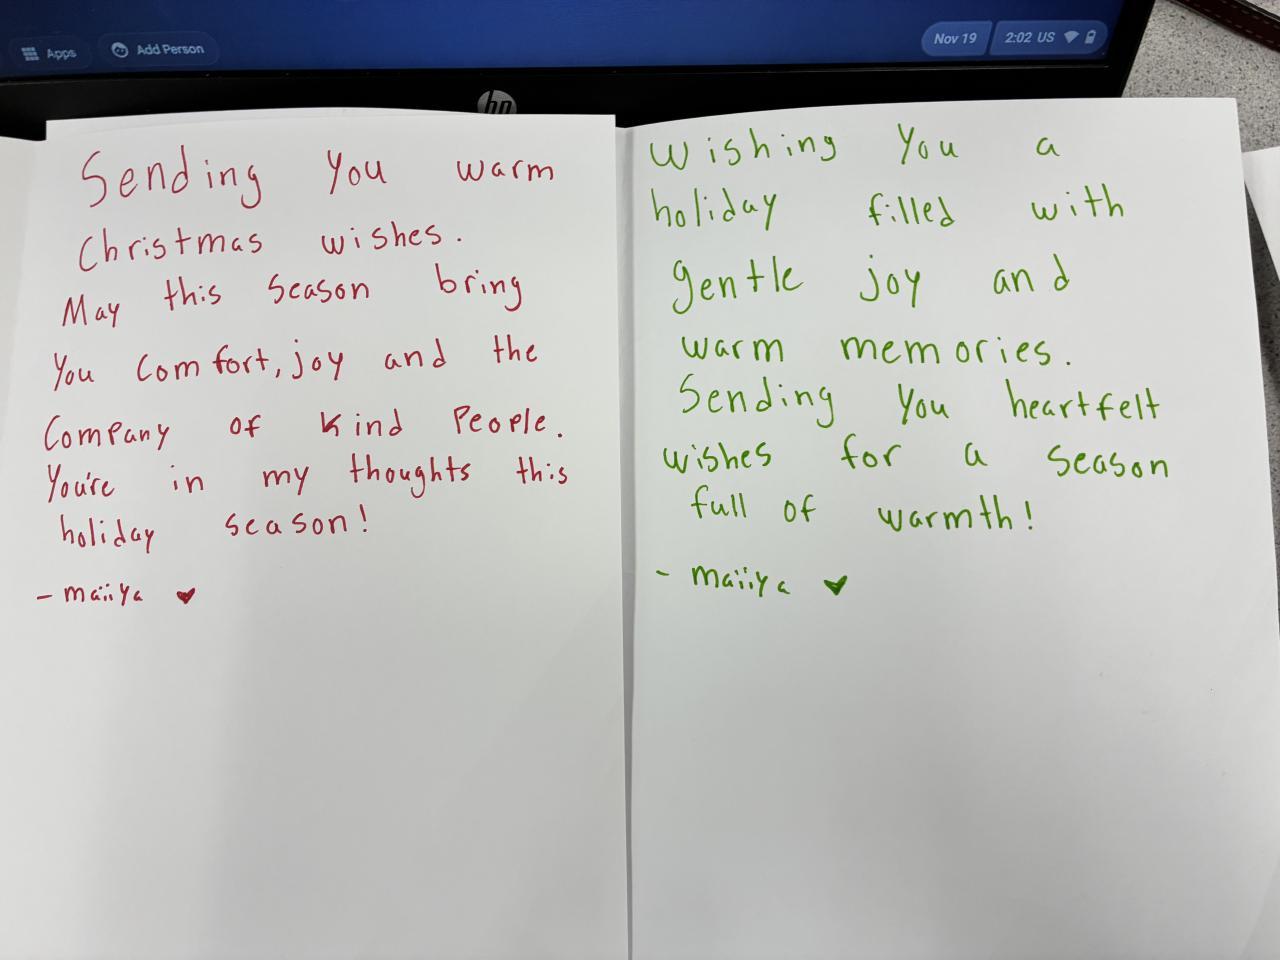 Apps
Add Person
Nov 19
2:02 US
hp
Sending You warm
Christmas wishes.
May this season bring
You comfort, joy and the
Company of kind People.
You're in my thoughts this
holiday season!
- maiiya ♥
Wishing You a
holiday filled with
gentle joy and
warm memories.
Sending You heartfelt
wishes for a season
full of warmth!
- maiiya ♥